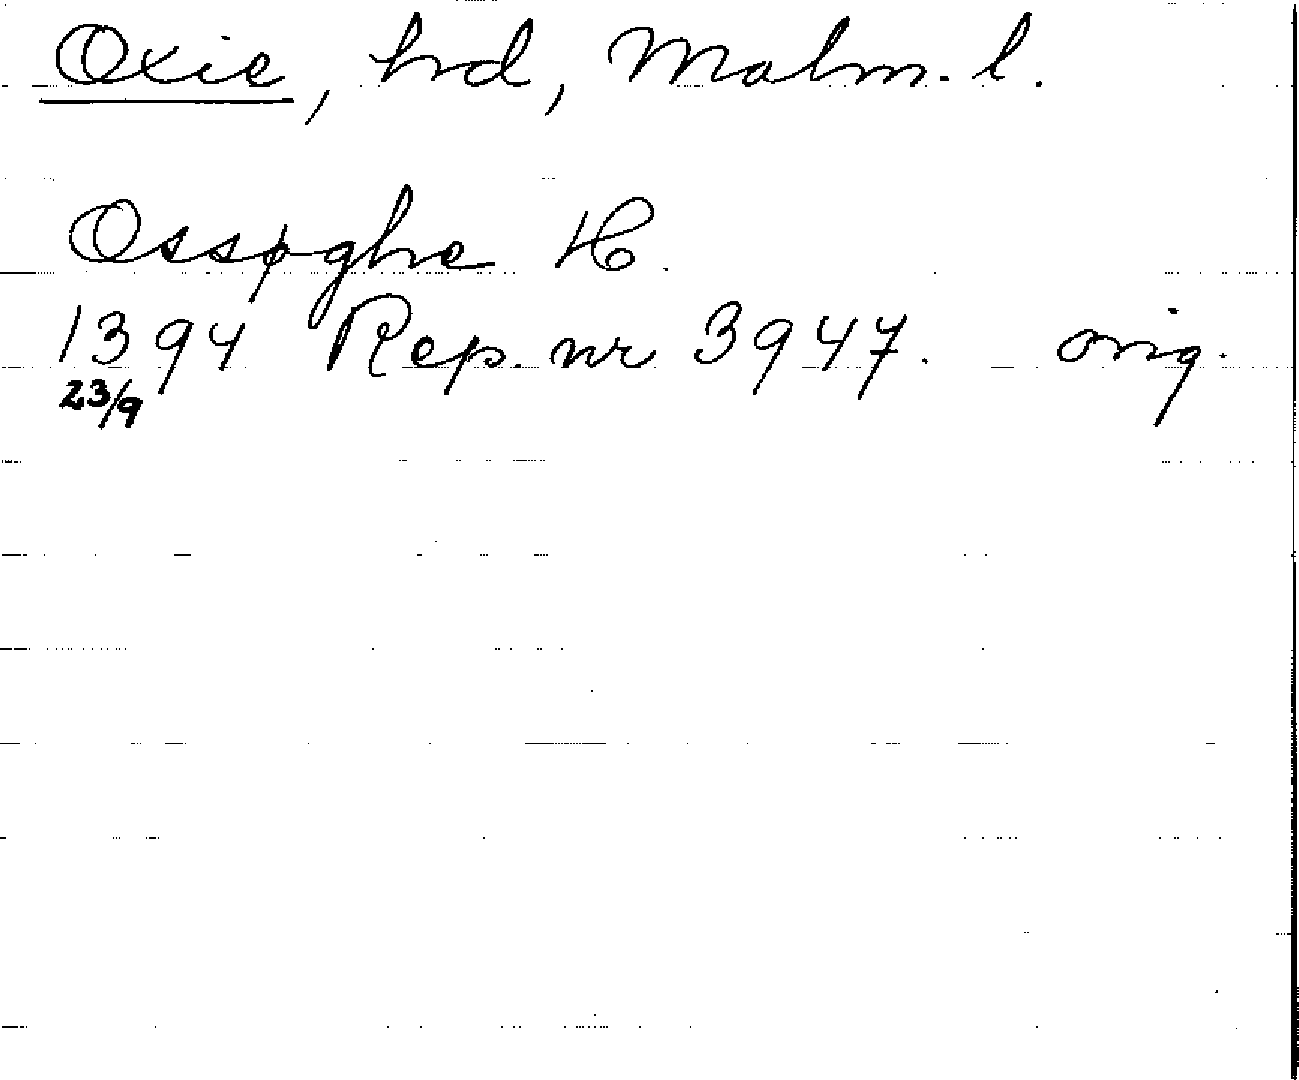 Oxie, hrd, Malm. l.
Ossøghe H.
1394 Rep. nr 3947. orig.
23/9